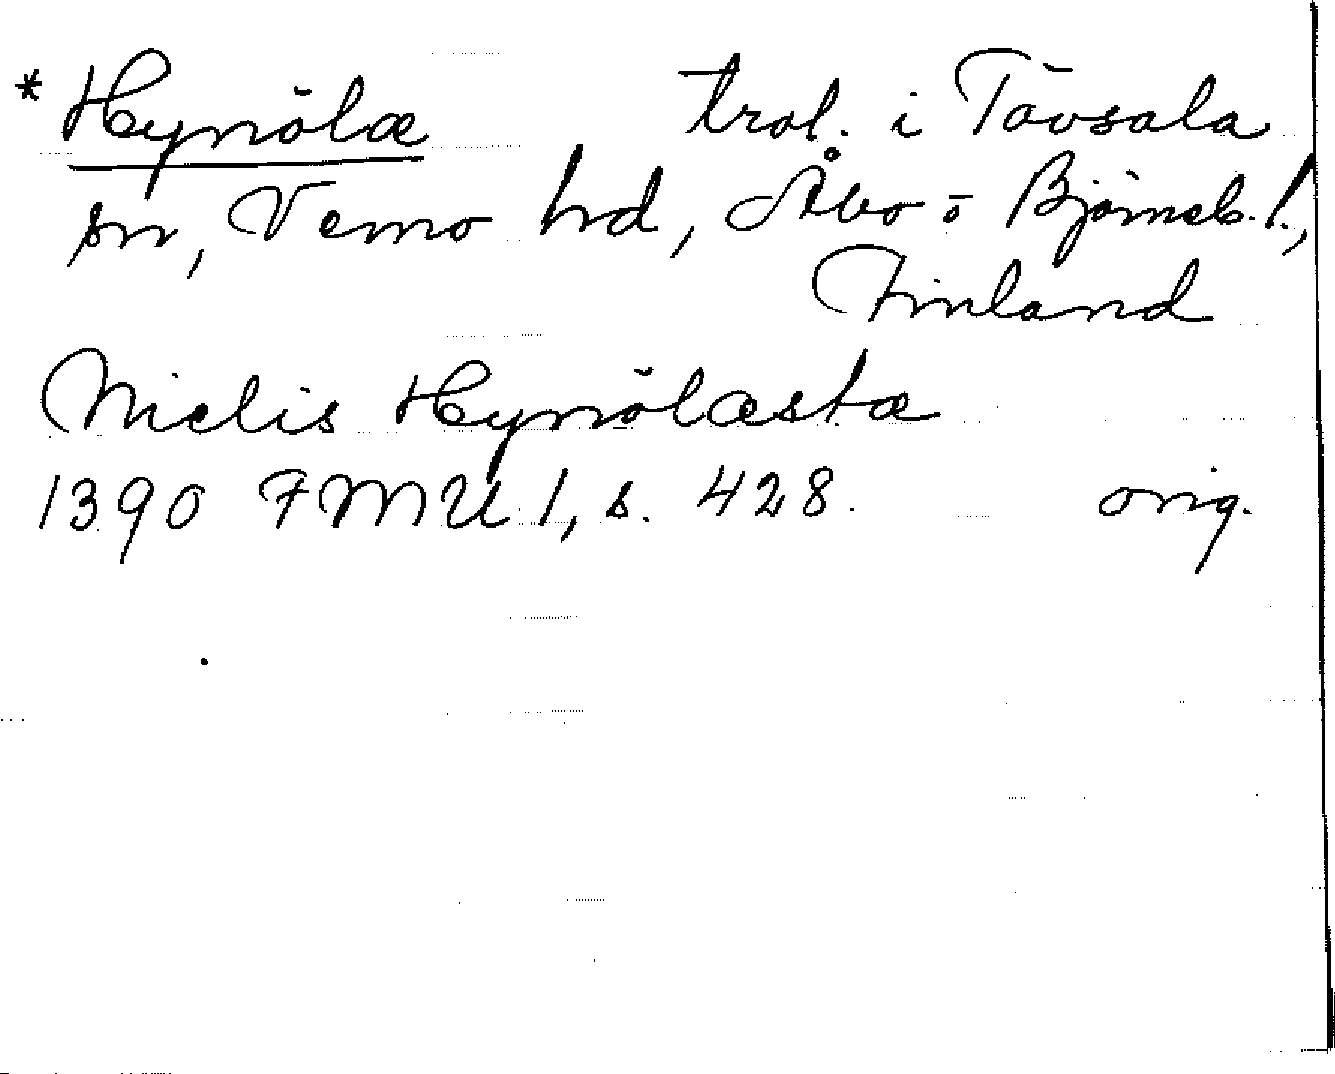 * Hynölæ trol. i Tövsala
sn, Vemo hd, Åbo o Björneb. l.,
Finland
Nielis Hynölæsta
1390 FMU 1, s. 428. orig.